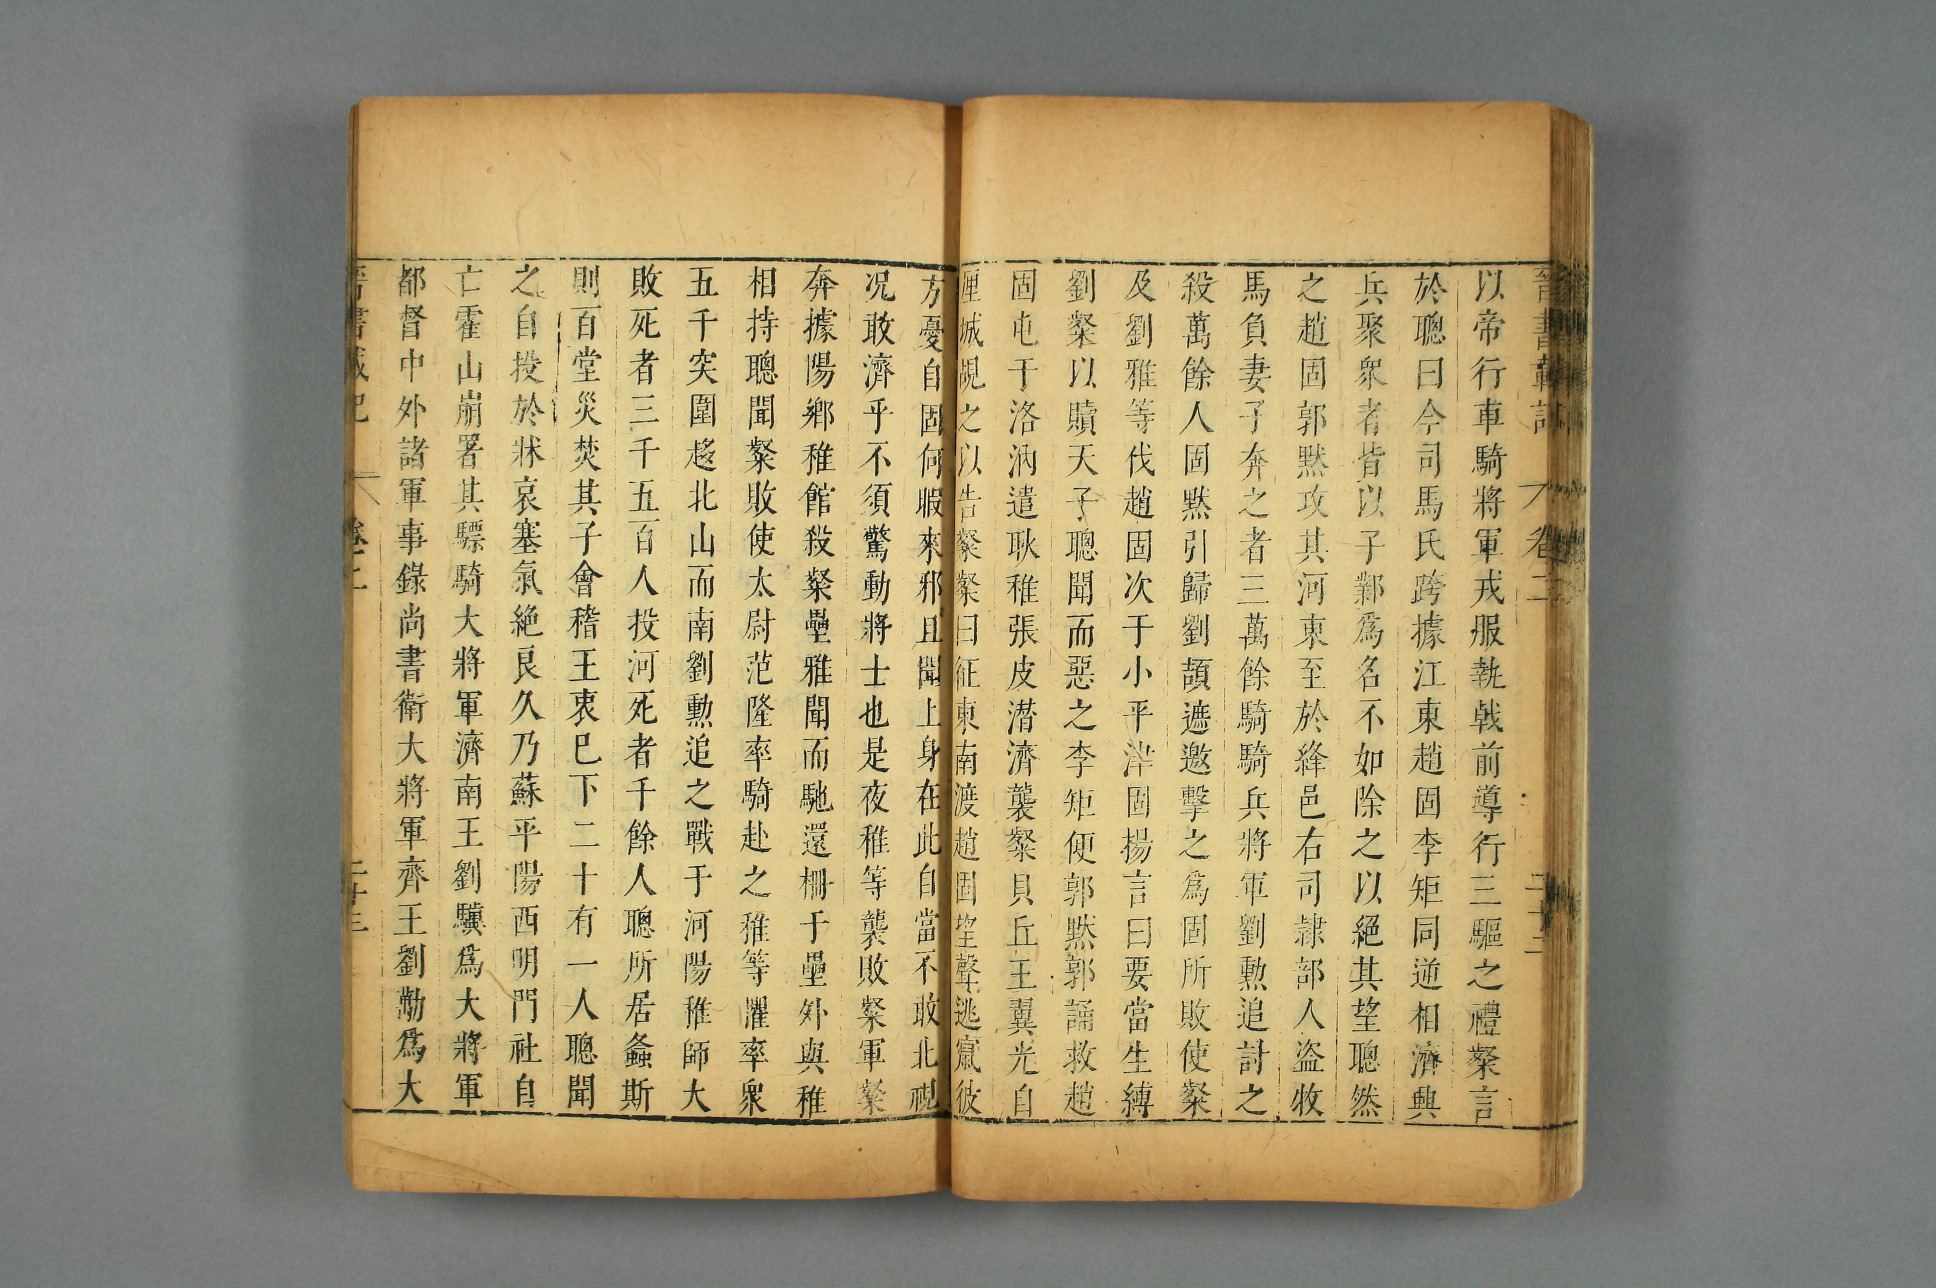 晉書載記 卷二 二十二
以帝行車騎將軍戎服執戟前導行三驅之禮粲言
於聰曰今司馬氏跨據江東趙固李矩同逆相濟興
兵聚衆者皆以子鄴爲名不如除之以絕其望聰然
之趙固郭默攻其河東至於絳邑右司隷部人盜牧
馬負妻子奔之者三萬餘騎騎兵將軍劉勲追討之
殺萬餘人固默引歸劉頡遮邀擊之爲固所敗使粲
及劉雅等伐趙固次于小平津固揚言曰要當生縛
劉粲以贖天子聰聞而惡之李矩使郭默郭誦救趙
固屯于洛汭遣耿稚張皮潛濟襲粲貝丘王翼光自
厘城覘之以告粲粲曰征東南渡趙固望聲逃竄彼
方憂自固何暇來邪且聞上身在此自當不敢北視
况敢濟乎不須驚動將士也是夜稚等襲敗粲軍粲
奔據陽鄉稚館殺粲壘雅聞而馳還柵于壘外與稚
相持聰聞粲敗使太尉范隆率騎赴之稚等懼率衆
五千突圍趍北山而南劉勲追之戰于河陽稚師大
敗死者三千五百人投河死者千餘人聰所居螽斯
則百堂災焚其子會稽王衷巳下二十有一人聰聞
之自投於牀哀塞氣絕良久乃蘇平陽西明門社自
亡霍山崩署其驃騎大將軍濟南王劉驥爲大將軍
都督中外諸軍事錄尚書衛大將軍齊王劉勱爲大
晉書載記 卷二 二十三